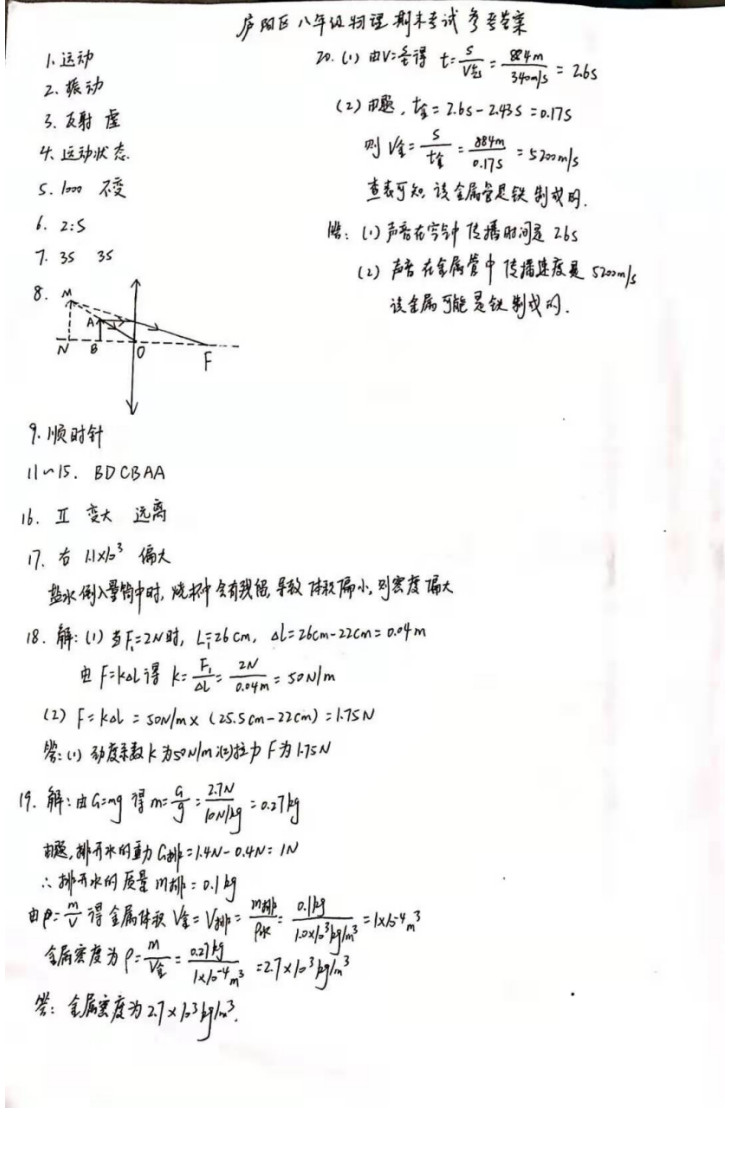 庐阳区八年级物理期末考试参考答案
1. 运动
2. 振动
3. 反射 虚
4. 运动状态.
5. 1000 不变
6. 2:5
7. 35 35
8.
M
A
N B O F
9. 顺时针
11~15. BDCBAA
16. Ⅱ 变大 远离
17. 右 1.1×10³ 偏大
盐水倒入量筒中时, 烧杯中会有残留, 导致体积偏小, 则密度偏大
18. 解: (1) 当F₁=2N时, L₁=26cm, Δl=26cm-22cm=0.04m
由 F=kΔl得 k=F₁/ΔL=2N/0.04m=50N/m
(2) F=kΔl=50N/m×(25.5cm-22cm)=1.75N
答: (1) 劲度系数k为50N/m (2)拉力F为1.75N
19. 解: 由G=mg得 m=G/g=2.7N/10N/kg=0.27kg
由题, 排开水的重力G排=1.4N-0.4N=1N
∴排开水的质量m排=0.1kg
由ρ=m/V得金属体积V金=V排=m排/ρ水=0.1kg/1.0×10³kg/m³=1×10⁻⁴m³
金属密度为ρ=m/V金=0.27kg/1×10⁻⁴m³=2.7×10³kg/m³
答: 金属密度为2.7×10³kg/m³.
20. (1) 由V=S/t得 t=S/V声=884m/340m/s=2.6s
(2) 由题, t金=2.6s-2.43s=0.17s
则V金=S/t金=884m/0.17s=5200m/s
查表可知, 该金属管是铁制成的.
答: (1) 声音在空气中传播时间是2.6s
(2) 声音在金属管中传播速度是5200m/s
该金属可能是铁制成的.